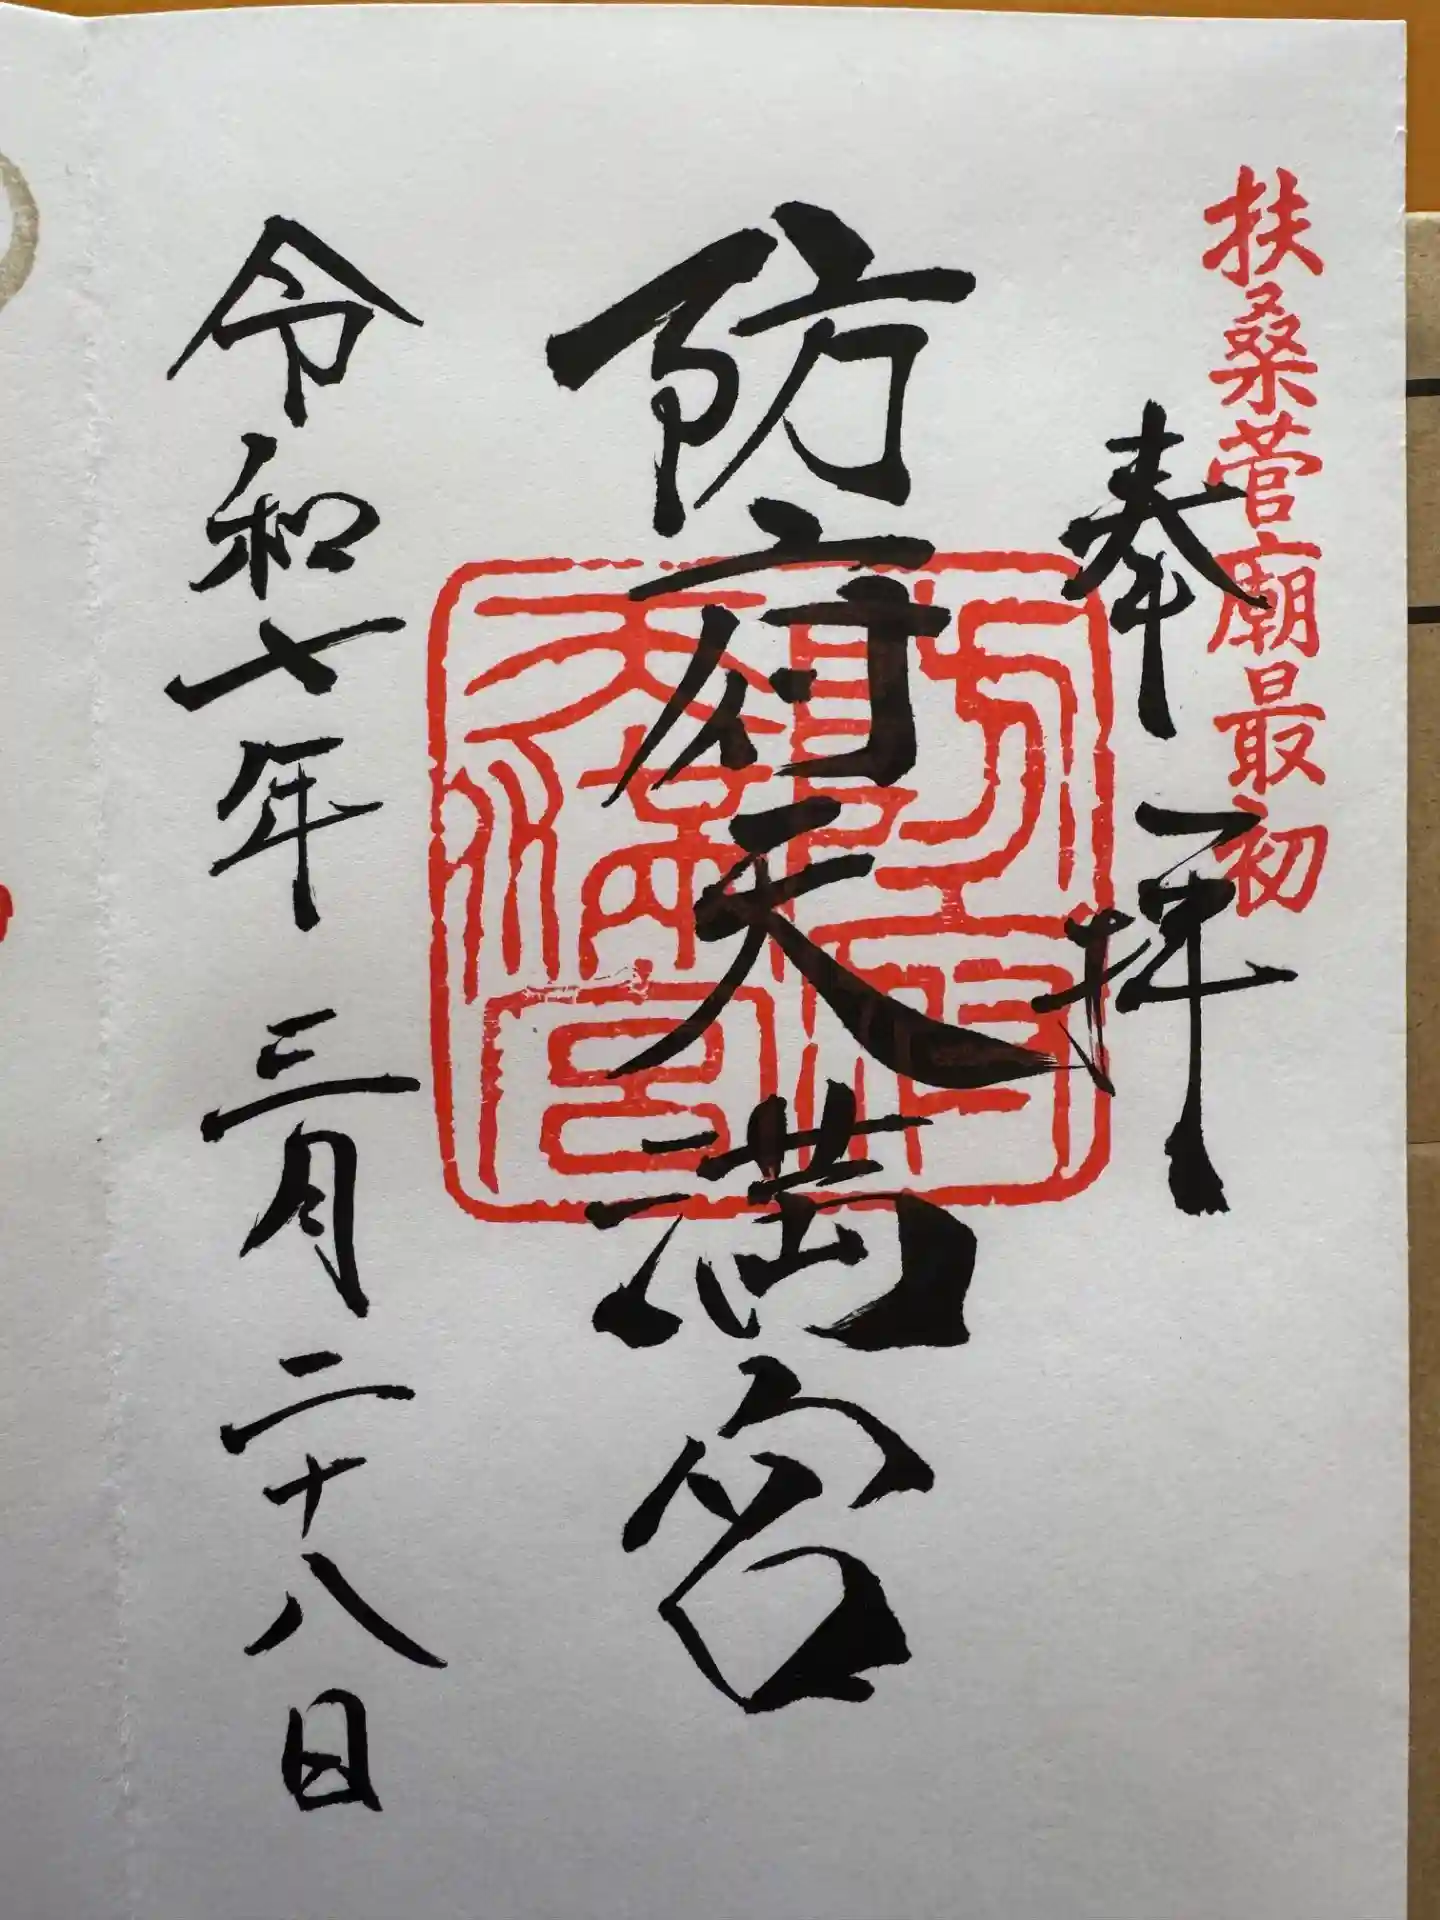 扶桑菅廟最初
奉拝
防府天満宮
防府天満宮
令和七年三月二十八日